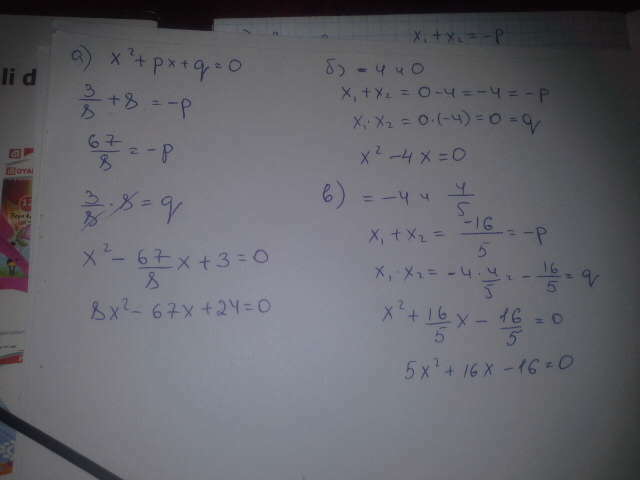 а) x² + px + q = 0
3/8 + 8 = -p
67/8 = -p
3/8 · 8 = q
x² - 67/8 x + 3 = 0
8x² - 67x + 24 = 0
x₁ + x₂ = -p
б) -4 и 0
x₁ + x₂ = 0 - 4 = -4 = -p
x₁ · x₂ = 0 · (-4) = 0 = q
x² - 4x = 0
в) = -4 и 4/5
x₁ + x₂ = -16/5 = -p
x₁ · x₂ = -4 · 4/5 = -16/5 = q
x² + 16/5 x - 16/5 = 0
5x² + 16x - 16 = 0